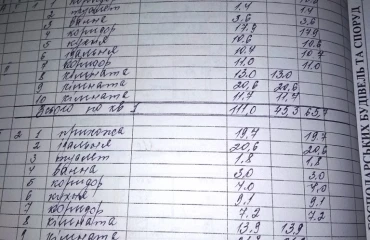 1 коридор
2 туалет 1,4 1,4
3 ванна 3,6 3,6
4 коридор 17,9 17,9
5 кухня 10,6 10,6
6 спальня 10,4 10,4
7 коридор 11,0 11,0
8 кімната 13,0 13,0
9 кімната 20,6 20,6
10 кімната 11,7 11,7
Всього по кв 1 111,0 45,3 65,7
2 1 прихожа 19,4 19,4
2 спальня 20,6 20,6
3 туалет 1,8 1,8
4 ванна 3,0 3,0
5 коридор 4,0 4,0
6 кухня 9,1 9,1
7 коридор 7,2 7,2
8 кімната 13,9 13,9
9 кімната
ГОСПОДАРСЬКИХ БУДІВЕЛЬ ТА СПОРУД